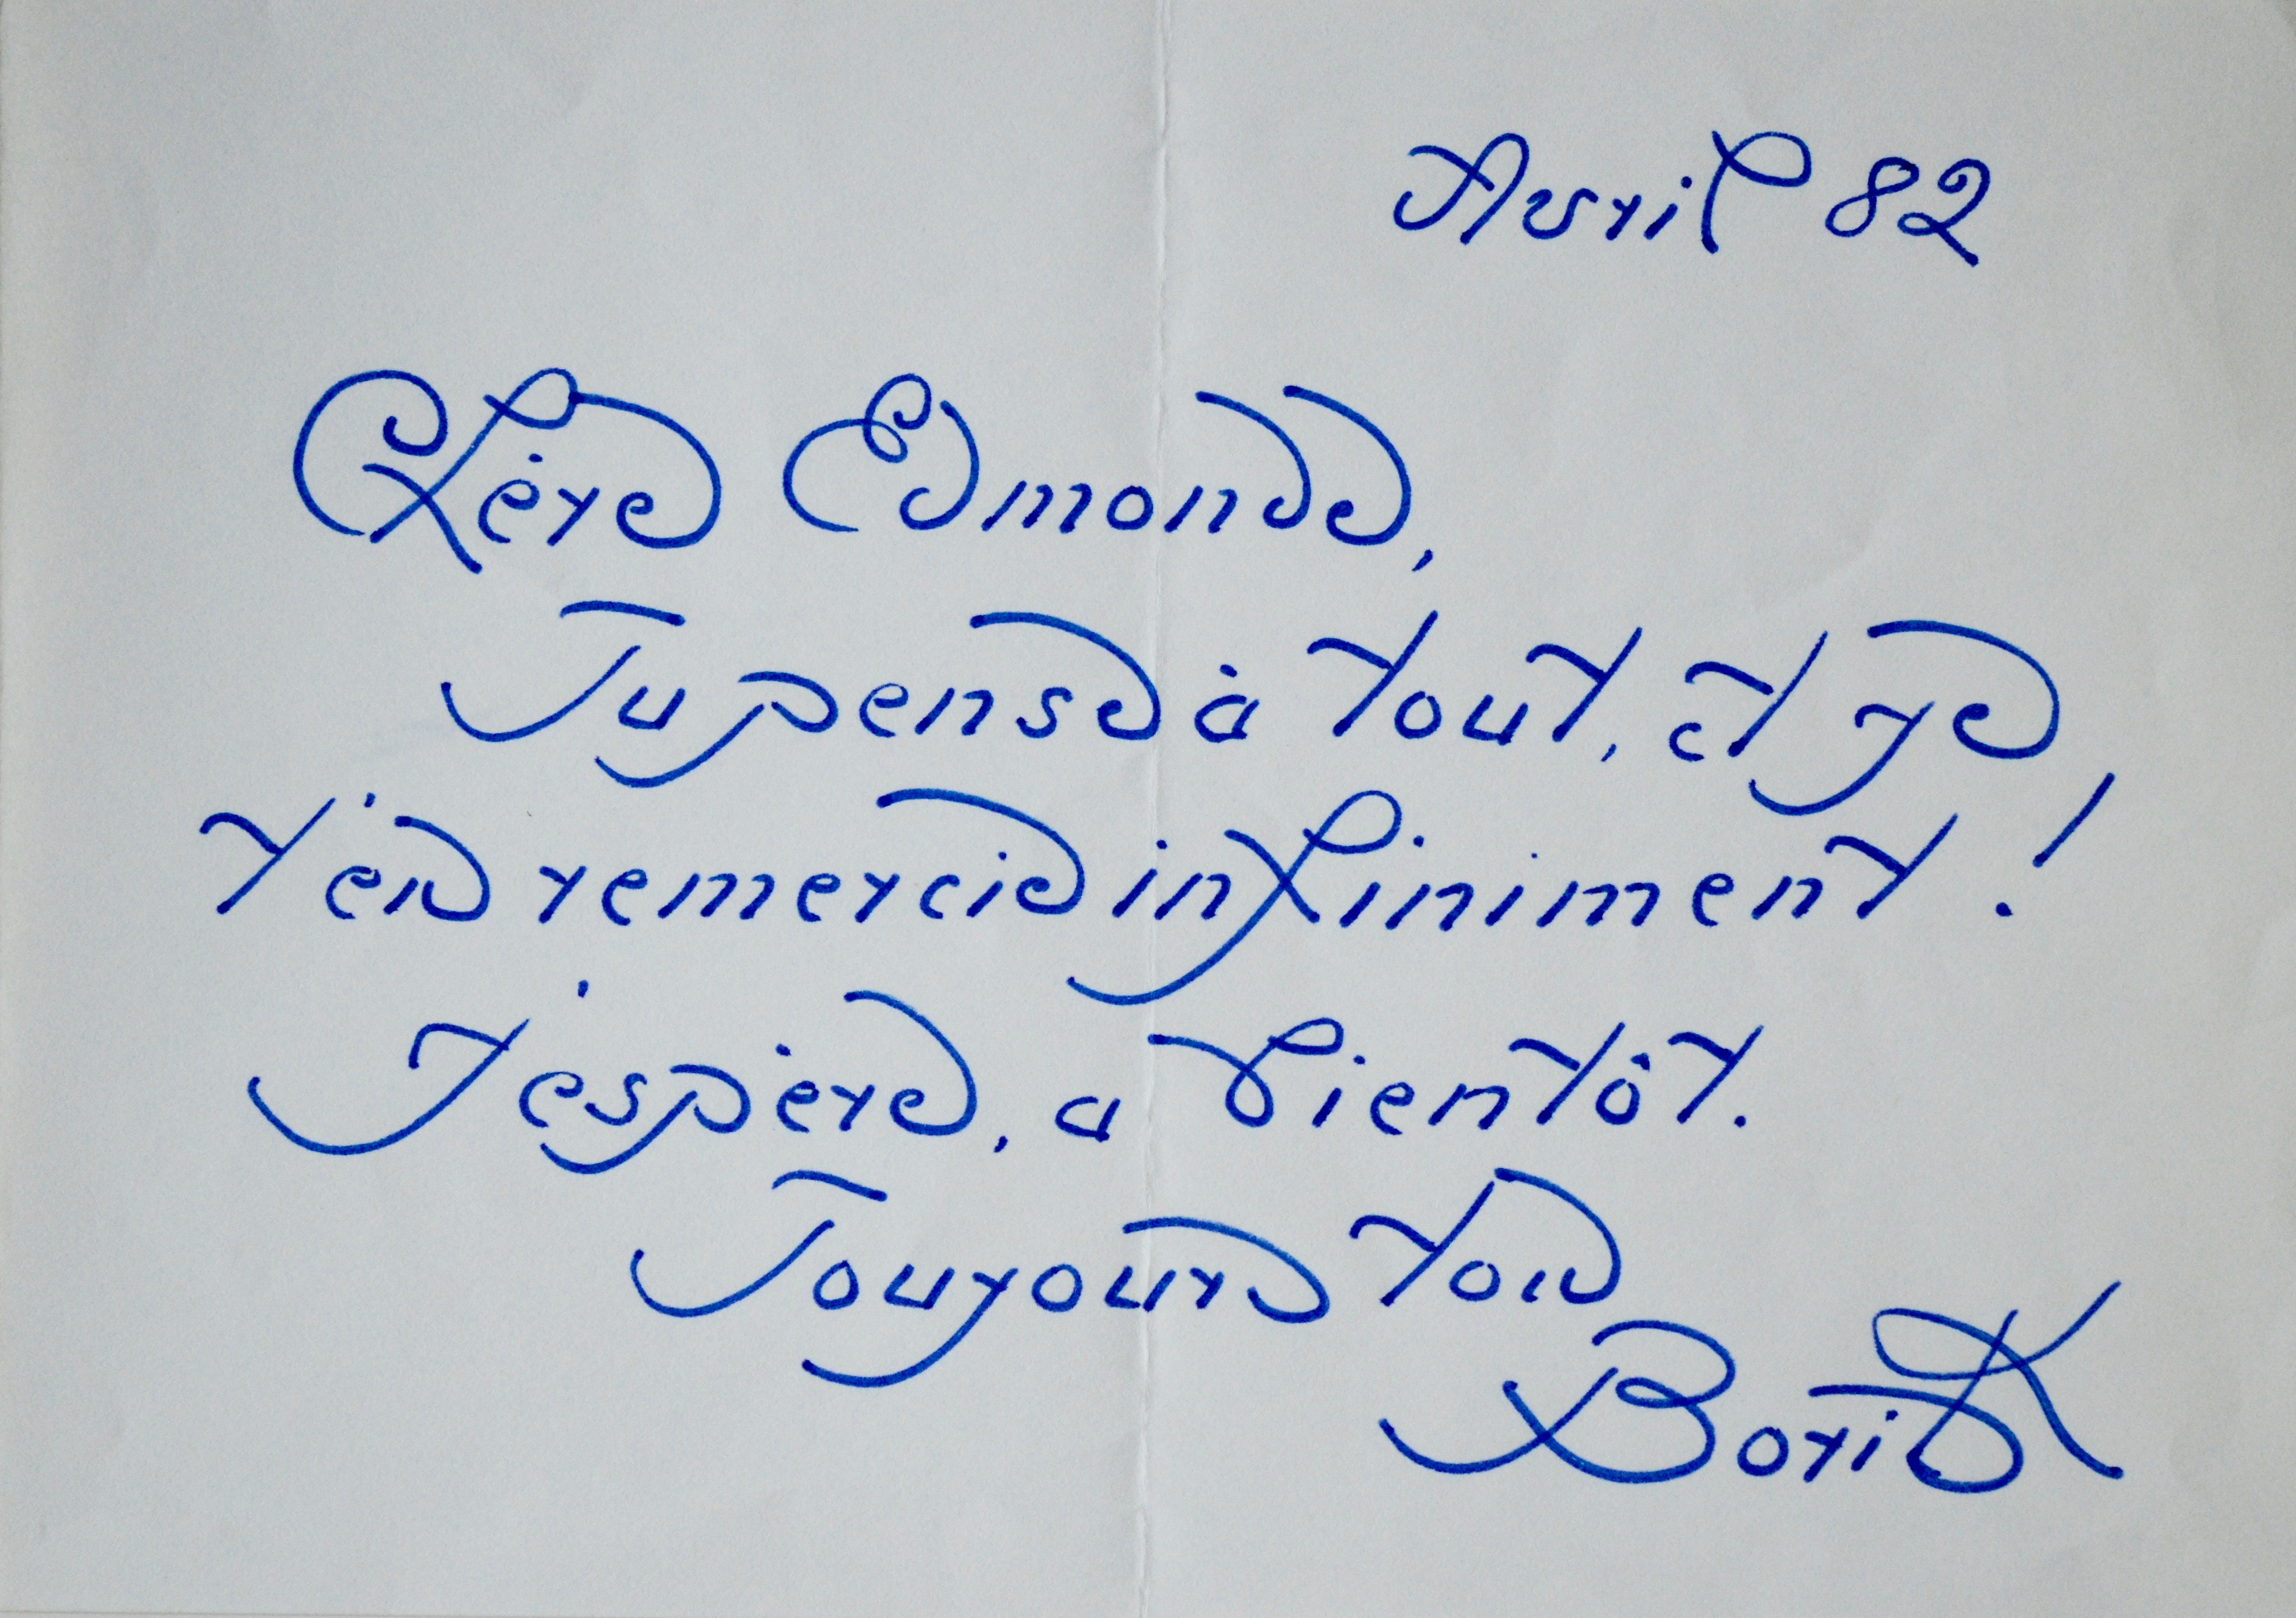 Avril 82
Chère Edmonde,
Tu penses à tout, et je
t'en remercie infiniment !
J'espère, a bientôt.
Toujours ton
Boris K